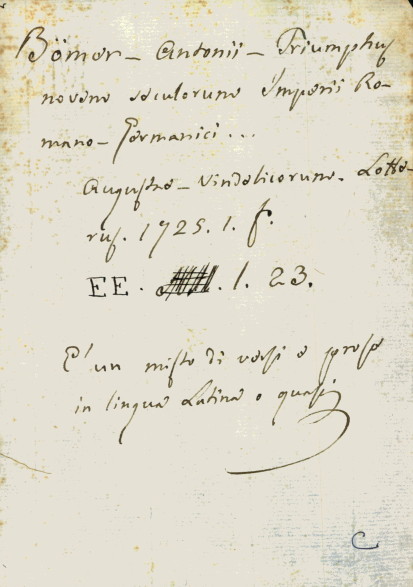 Bömer - Antonii - Triumphus
novem sæculorum Imperii Ro-
mano-Germanici...
Augustæ-Vindelicorum. Lotte-
rus. 1725. 1. f.
EE. . I. 23.
E' un misto di versi e prose
in lingua Latina o quasi
C